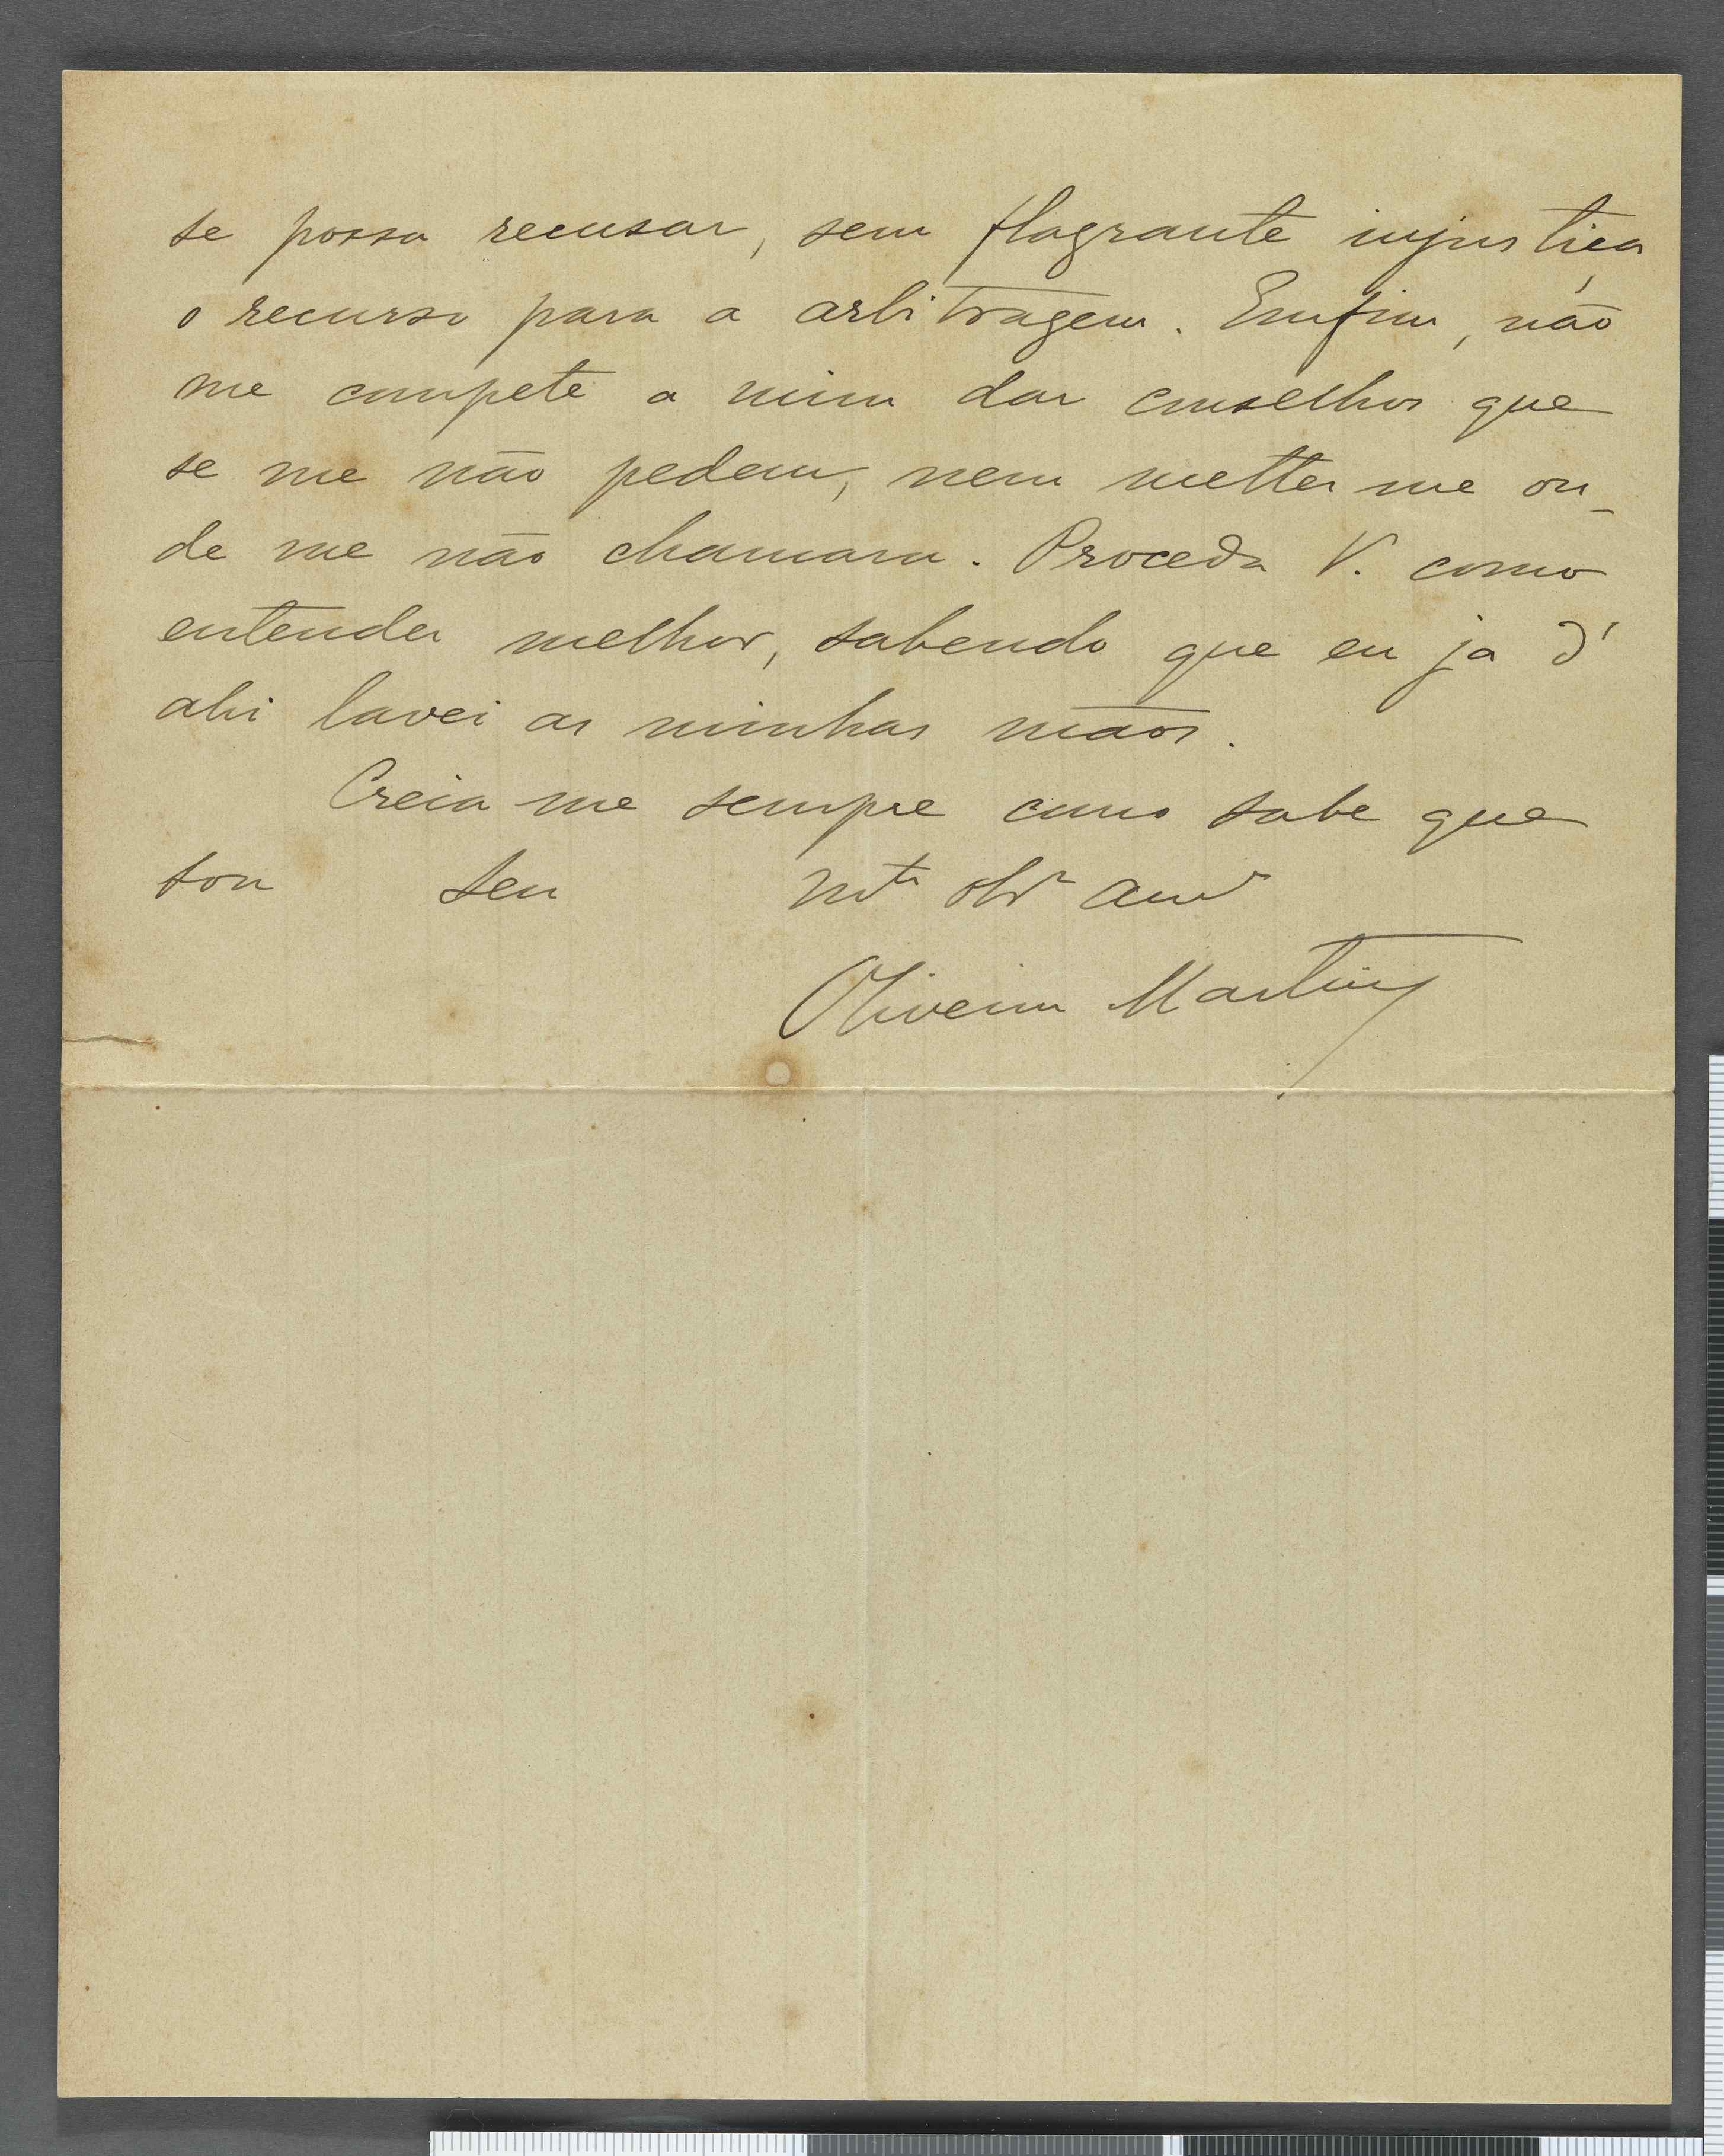 se possa recusar, sem flagrante injustiça
o recurso para a arbitragem. Emfim, não
me compete a mim dar conselhos que
se me não pedem, nem metter me on-
de me não chamam. Proceda V. como
entender melhor, sabendo que eu ja d'
ahi lavei as minhas mãos.
Creia me sempre como sabe que
sou seu mto obr amo
Oliveira Martins